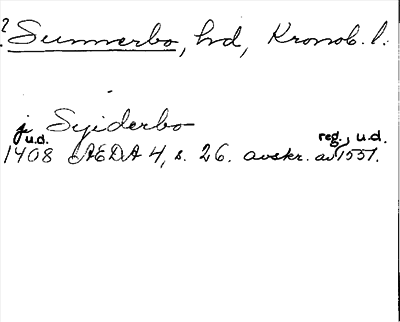 ? Sunnerbo, hd, Kronob. l.
j Syiderbo
u.d. reg., u.d.
1408 AEDA 4, s. 26. avskr. av 1551.